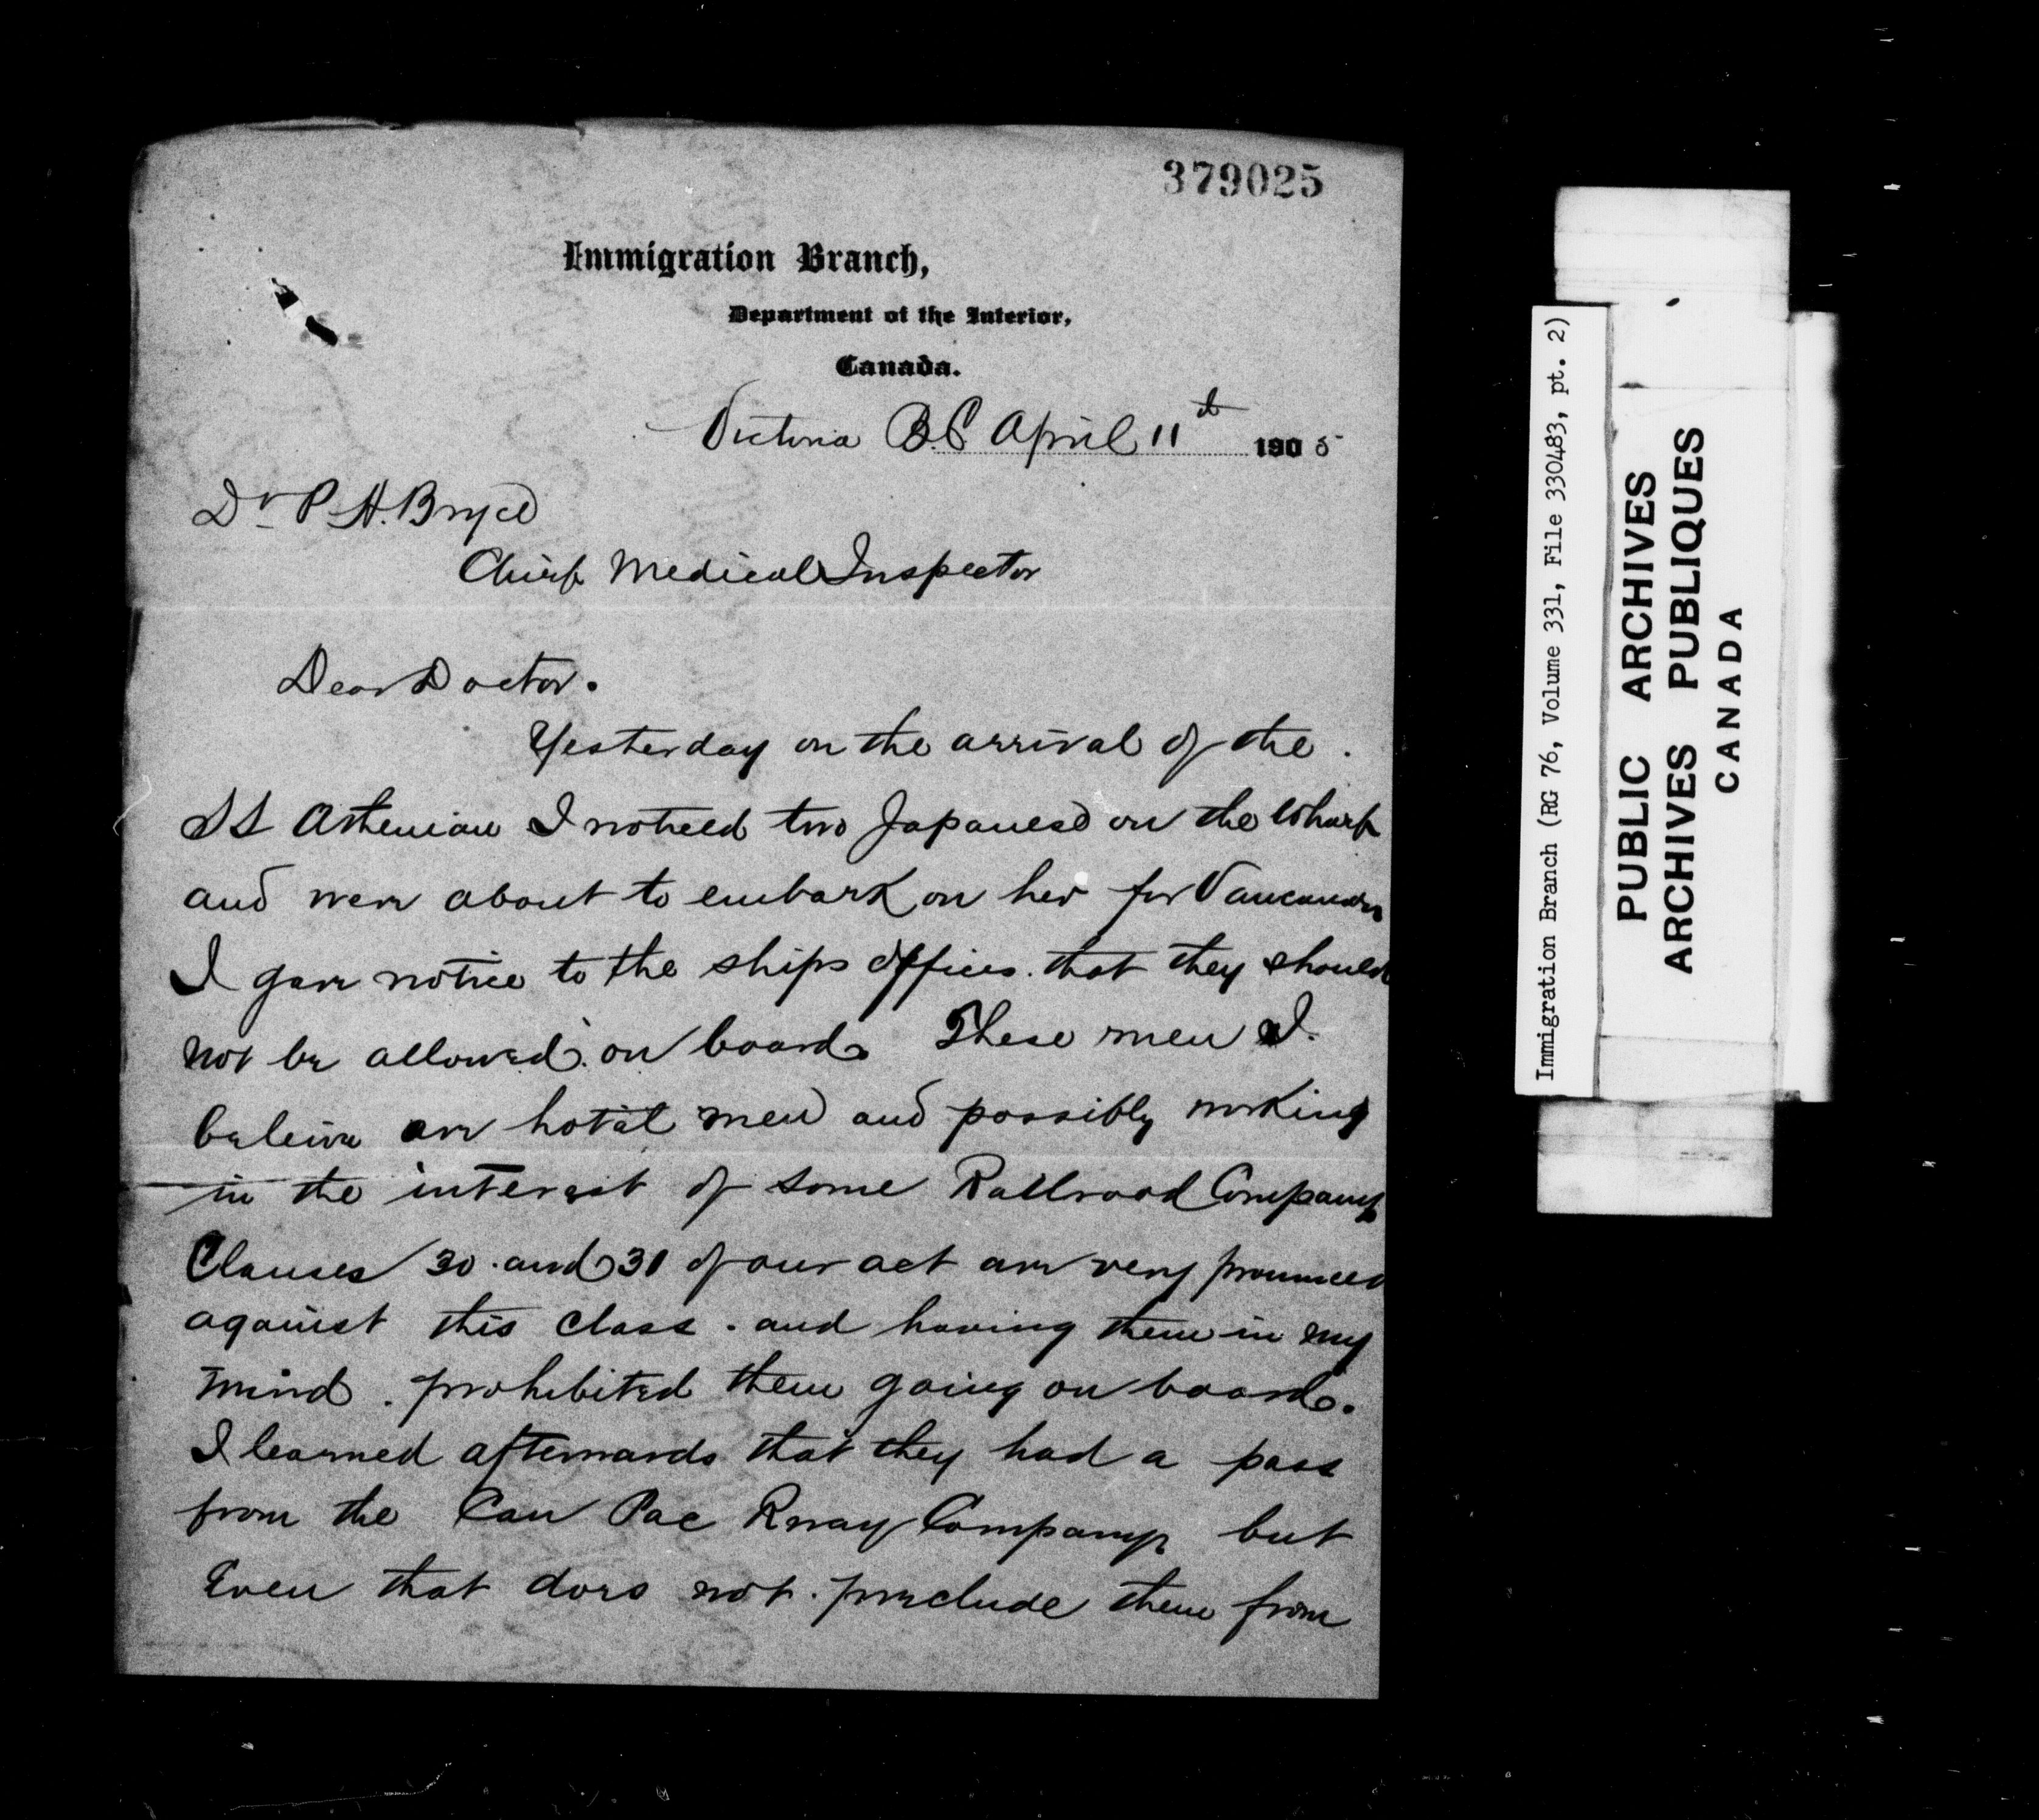 379025
Immigration Branch,
Department of the Interior,
Canada.
Victoria B.C April 11th 1905
Dr P. H. Bryce
Chief Medical Inspector
Dear Doctor.
Yesterday on the arrival of the
SS Athenian I noticed two Japanese on the Wharf
and were about to embark on her for Vancouver
I gave notice to the ships officers. that they should
not be allowed on board. These men I
beleive are hotel men and possibly working
in the interest of some Railroad Company
Clauses 30 and 31 of our act are very pronounced
against this class. and having them in my
mind. prohibited them going on board.
I learned afterwards that they had a pass
from the Can Pac Rway Company but
Even that does not preclude them from
Immigration Branch (RG 76, Volume 331, File 330483, pt. 2)
PUBLIC ARCHIVES
ARCHIVES PUBLIQUES
CANADA